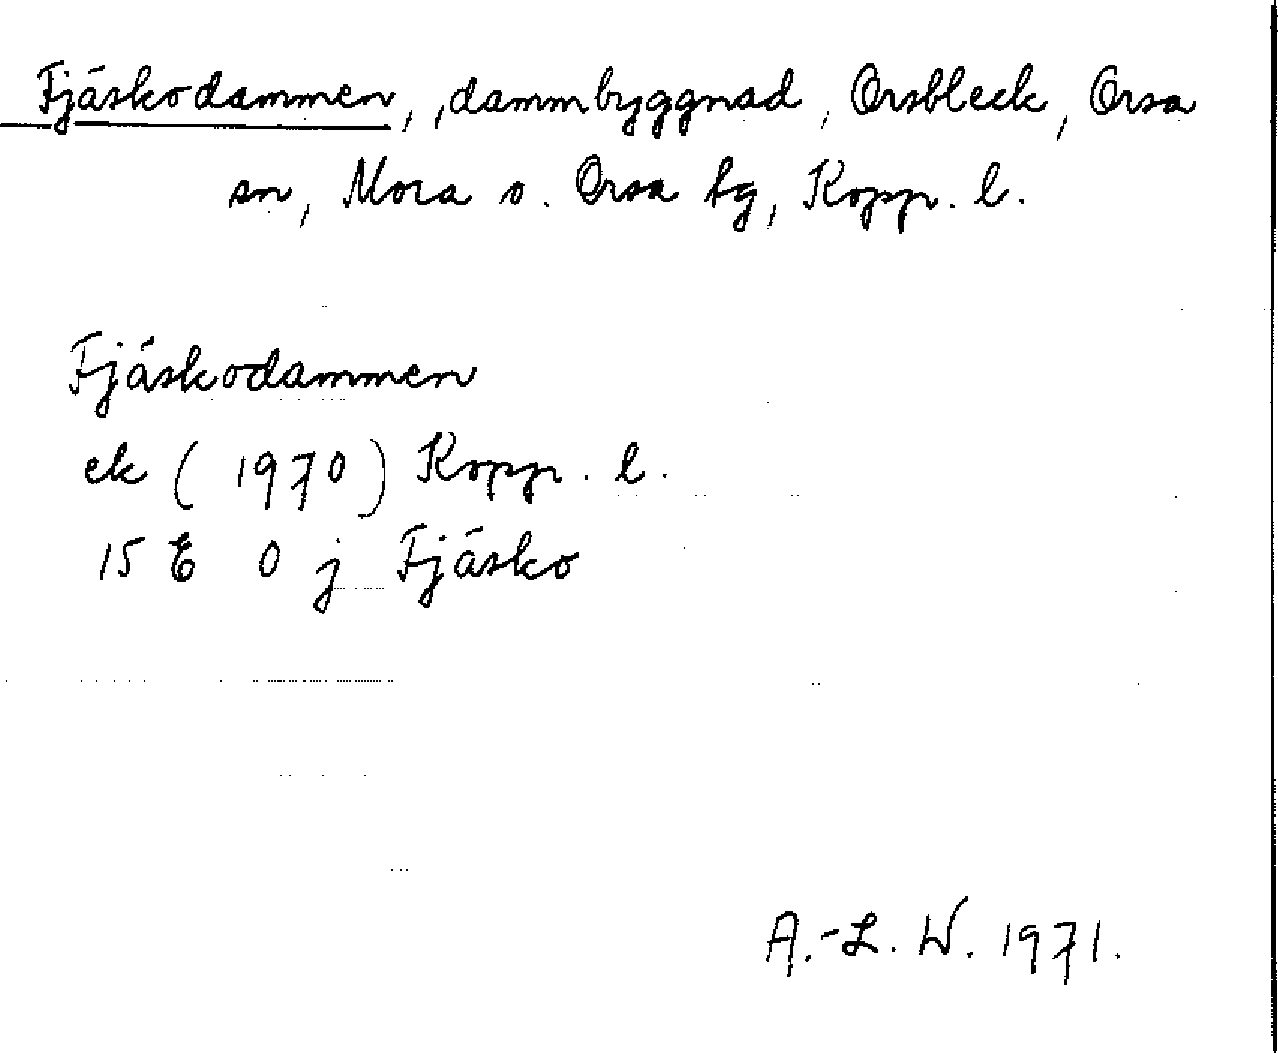 Fjäskodammen, dammbyggnad, Orsbleck, Orsa
sn, Mora o. Orsa tg, Kopp. l.
Fjäskodammen
ek (1970) Kopp. l.
15 E 0 j Fjäsko
A.-L. W. 1971.